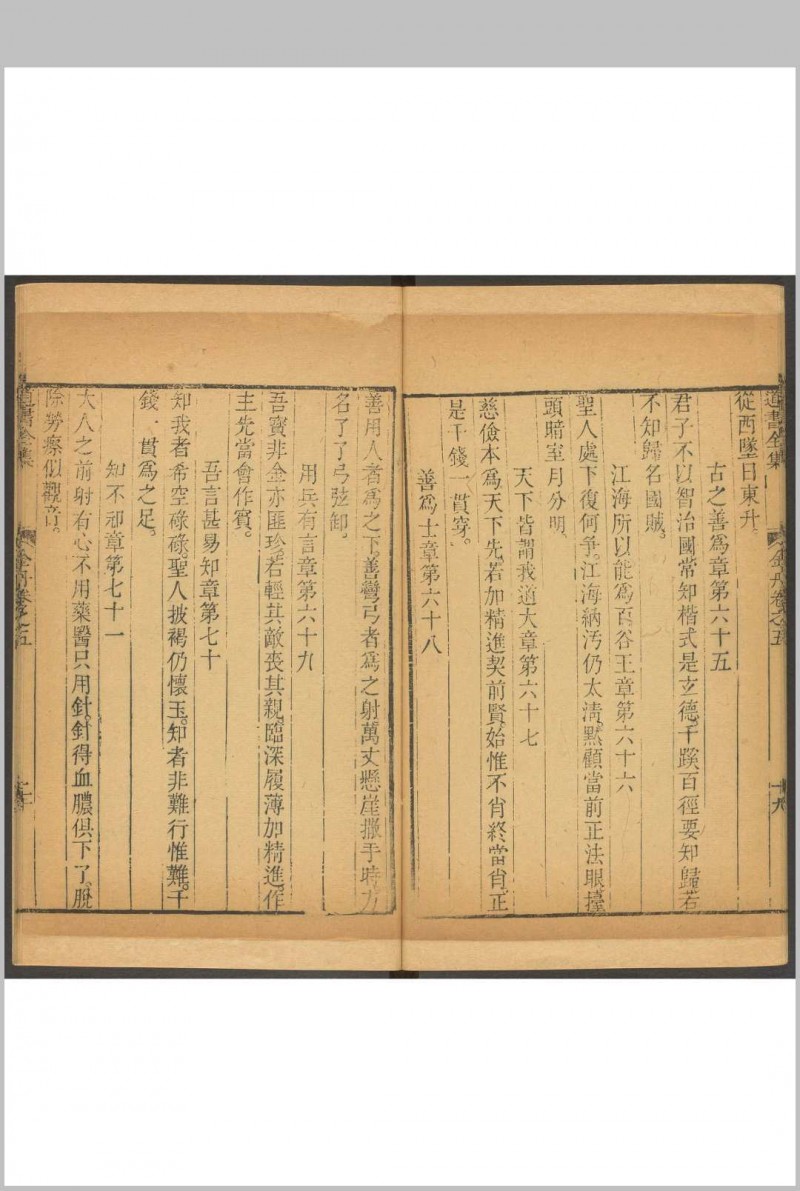 道書全集
金丹卷之五
十九
從西墜日東升
古之善為章第六十五
君子不以智治國常知楷式是玄德千蹊百徑要知歸若
不知歸名國賊
江海所以能為百谷王章第六十六
聖人處下復何爭江海納汚仍太淸黙顧當前正法眼擡
頭暗室月分明
天下皆謂我道大章第六十七
慈儉本為天下先若加精進契前賢始惟不肖終當肖正
是千錢一貫穿
善為士章第六十八
善用人者為之下善彎弓者為之射萬丈懸崖撒手時力
名了了弓弦卸
用兵有言章第六十九
吾寶非金亦匪珍若輕其敵喪其親臨深履薄加精進作
主先當會作賓
吾言甚易知章第七十
知我者希空碌碌聖人披褐仍懷玉知者非難行惟難千
錢一貫為之足
知不知章第七十一
大人之前射有心不用藥醫只用針針得血膿俱下了脫
除勞瘵似觀音
道書全集
金丹卷之五